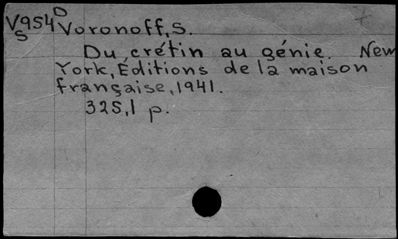 V954D Voronoff, S.
S
Du crétin au génie. New
York, Éditions de la maison
française, 1941.
325,1 p.